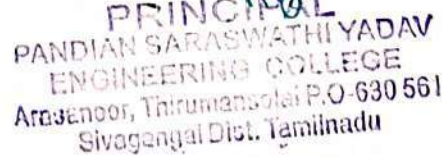 PRINCIPAL
PANDIAN SARASWATHI YADAV
ENGINEERING COLLEGE
Arasanoor, Thirumansolai P.O-630 561
Sivagangai Dist. Tamilnadu